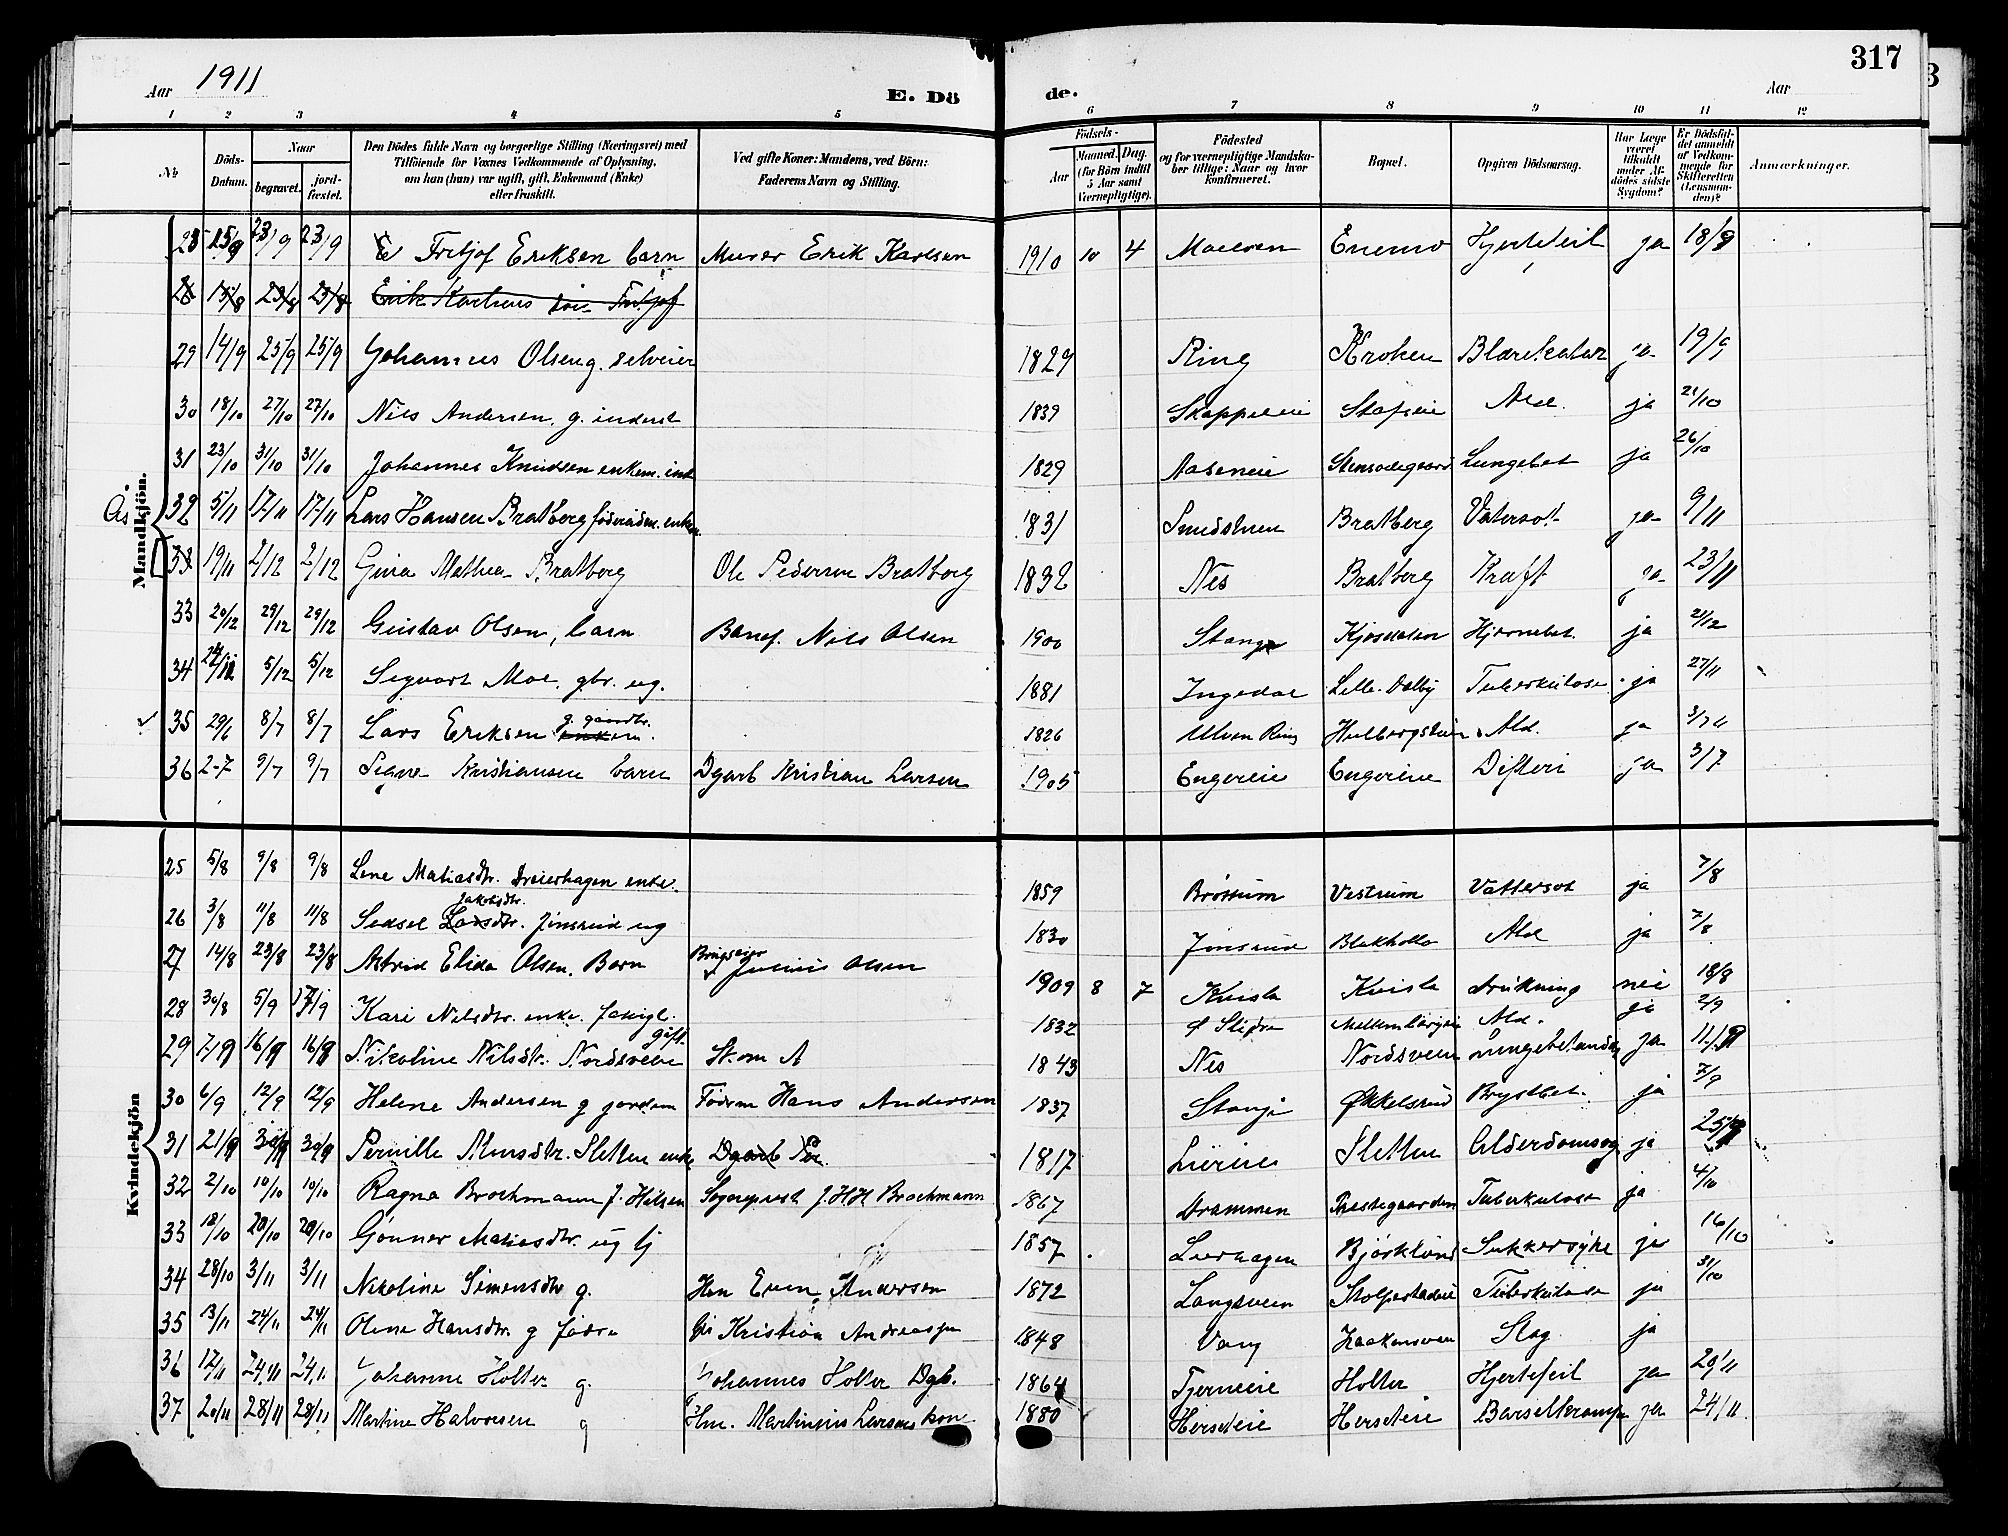 317
Aar 1911
E. Dö
de.
Aar
1 2 3 4 5 6 7 8 9 10 11 12
No
Döds-Datum.
Naar
begravet.
jord-fæstet.
Den Dödes fulde Navn og borgerlige Stilling (Næringsvei) med
Tilföiende for Voxnes Vedkommende af Oplysning,
om han (hun) var ugift, gift, Enkemand (Enke)
eller fraskilt.
Ved gifte Koner: Mandens, ved Börn:
Faderens Navn og Stilling.
Födsels-
Aar
Maaned. Dag.
(for Börn indtil 5 Aar samt Værnepligtige).
Födested
og for værnepligtige Mandska-
ber tillige: Naar og hvor
konfirmeret.
Bopæl.
Opgiven Dödsaarsag.
Har Læge været tilkaldt under Af-dödes sidste Sygdom?
Er Dödsfal-det anmeldt af Vedkom-mende for Skifteretten (Lensman-den)?
Anmærkninger.
Mandkjön.
28 15/9 23/9 23/9 Fritjof Eriksen barn Murer Erik Karlsen 1910 10 4 Maelven Enemo Hjertefeil ja 18/9
28 13/8 23/8 23/8 Erik Karlsens Fritjof
29 14/9 25/9 25/9 Johannes Olsen g. selveier 1829 Ring Kroken Blærekatar ja 19/9
30 18/10 27/10 27/10 Nils Andersen, g. inderst 1839 Skappeleie Ald. ja 21/10
31 23/10 31/10 31/10 Johannes Knudsen enkem. ind 1829 Aaseneie Lungebet ja 26/10
32 5/11 17/11 17/11 Lars Hansen Bratberg 1831 Smedstuen Bratberg Vatersot ja 9/11
33 19/11 2/12 2/12 Gina Mathea Bratberg Ole Pedersen Bratberg 1832 Nes Bratberg Kræft ja 23/11
33 20/12 29/12 29/12 Gustav Olsen, barn Banef. Nils Olsen 1900 Stange Kjosdalen Hjernebet. ja 21/12
34 5/12 5/12 Sigvart Moe, gbr. ug. 1881 Ingedal Lille-Dalby Tuberkulose ja 27/11
35 29/6 8/7 8/7 Lars Eriksen enkem. g. gaardbr. 1826 Ulven Ring Ald. ja
36 2-7 9/7 9/7 Signe Kristiansen barn Dgarb Kristian Larsen 1905 Engereie Engereie Difteri ja 3/7
Kvindekjön
25 5/8 9/8 9/8 Lene Matiasdtr. Dreierhagen enke. 1859 Brøttum Vestrum Vattersot ja 7/8
26 3/8 11/8 11/8 Sedsel Larsdtr. Jakobsdtr. Jinsrud ug 1830 Jinsrud Ald ja 7/8
27 14/8 23/8 23/8 Astrid Elida Olsen. Barn Julius Olsen 1909 8 7 Kvisla Kvisla drukning nei 18/8
28 30/8 5/9 Kari Nilsdtr. enke. 1832 Ø Slidre Ald. ja 2/9
29 7/9 16/9 16/9 Nikoline Nilsdtr. Nordsveen gift. St. om A 1843 Nes Nordsveen ja 11/9
30 6/9 12/9 12/9 Helene Andersen g Hans Andersen 1837 Stange Økkelsrud Brystbet. ja 7/9
31 21/9 30/9 30/9 Pernille Monsdtr. Sletten enke Dgarb Per. 1817 Sletten ja 25/9
32 2/10 10/10 10/10 Ragna Brochmann f. Sogneprest J.HH Brochmann 1867 Drammen Prestegaarden Tuberkulose ja 4/10
33 12/10 20/10 20/10 Gønner Matiasdtr. ug tj 1857 Bjørklund Sukkersyke ja 16/10
34 28/10 3/11 3/11 Nikoline Simensdtr g. Hm Even Andersen 1872 Langsveen Tuberkulose ja 31/10
35 13/11 24/11 24/11 Oline Hansdtr. g Kristian 1848 Vang Slag ja
36 17/11 24/11 24/11 Johanne Holter g. Johannes Holter Dgb. 1864 Tjerneeie Holter Hjertefeil ja 20/11
37 20/11 28/11 28/11 Martine Halvorsen g Hm. Martinius Larsens kone 1880 Herseteie Herseteie Barselkrampe ja 24/11